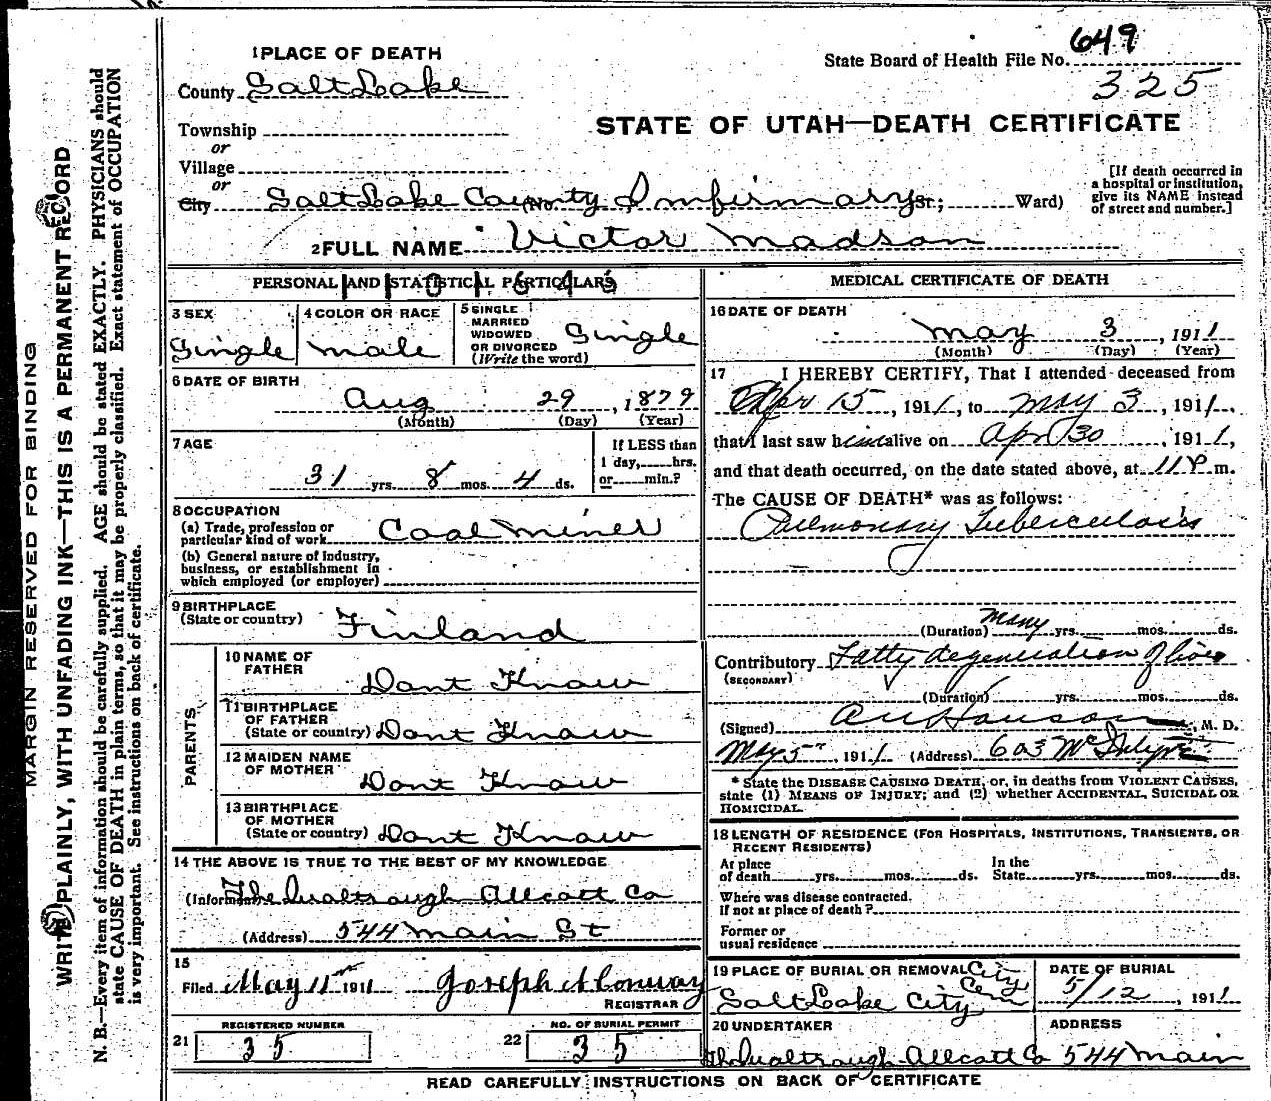 649
State Board of Health File No.
325
1 PLACE OF DEATH
County Salt Lake
STATE OF UTAH—DEATH CERTIFICATE
Township
or
Village
or
City Salt Lake County Infirmary (No. St; Ward)
[If death occurred in
a hospital or institution,
give its NAME instead
of street and number.]
2 FULL NAME Victor Madson
PERSONAL AND STATISTICAL PARTICULARS
3 SEX
Single
4 COLOR OR RACE
male
5 SINGLE
MARRIED
WIDOWED
OR DIVORCED
(Write the word)
Single
6 DATE OF BIRTH
Aug 29, 1879
(Month) (Day) (Year)
7 AGE
31 yrs. 8 mos. 4 ds.
If LESS than
1 day, hrs.
or min.?
8 OCCUPATION
(a) Trade, profession or
particular kind of work Coal Miner
(b) General nature of Industry,
business, or establishment in
which employed (or employer)
9 BIRTHPLACE
(State or country) Finland
PARENTS
10 NAME OF
FATHER Dont Know
11 BIRTHPLACE
OF FATHER
(State or country) Dont Know
12 MAIDEN NAME
OF MOTHER Dont Know
13 BIRTHPLACE
OF MOTHER
(State or country) Dont Know
14 THE ABOVE IS TRUE TO THE BEST OF MY KNOWLEDGE
(Informant) The Allcott Co
(Address) 544 Main St
15
Filed May 11th 1911 Joseph Conway
REGISTRAR
21
REGISTERED NUMBER
35
22
NO. OF BURIAL PERMIT
35
MEDICAL CERTIFICATE OF DEATH
16 DATE OF DEATH
May 3, 1911
(Month) (Day) (Year)
17 I HEREBY CERTIFY, That I attended deceased from
Apr 15, 1911, to May 3, 1911,
that I last saw him alive on Apr 30, 1911,
and that death occurred, on the date stated above, at 11 P m.
The CAUSE OF DEATH* was as follows:
Pulmonary Tuberculosis
(Duration) Many yrs. mos. ds.
Contributory Fatty degeneration of liver
(SECONDARY)
(Duration) yrs. mos. ds.
(Signed) , M. D.
May 5, 1911 (Address) 603 McIntyre
* State the DISEASE CAUSING DEATH, or, in deaths from VIOLENT CAUSES,
state (1) MEANS OF INJURY; and (2) whether ACCIDENTAL, SUICIDAL OR
HOMICIDAL.
18 LENGTH OF RESIDENCE (FOR HOSPITALS, INSTITUTIONS, TRANSIENTS, OR
RECENT RESIDENTS)
At place
of death yrs. mos. ds.
In the
State yrs. mos. ds.
Where was disease contracted.
If not at place of death?
Former or
usual residence
19 PLACE OF BURIAL OR REMOVAL City
Cem
Salt Lake City
DATE OF BURIAL
5/12, 1911
20 UNDERTAKER
The Allcott Co
ADDRESS
544 Main
READ CAREFULLY INSTRUCTIONS ON BACK OF CERTIFICATE
MARGIN RESERVED FOR BINDING
WRITE PLAINLY, WITH UNFADING INK—THIS IS A PERMANENT RECORD
N. B.—Every item of information should be carefully supplied. AGE should be stated EXACTLY. PHYSICIANS should
state CAUSE OF DEATH in plain terms, so that it may be properly classified. Exact statement of OCCUPATION
is very important. See instructions on back of certificate.